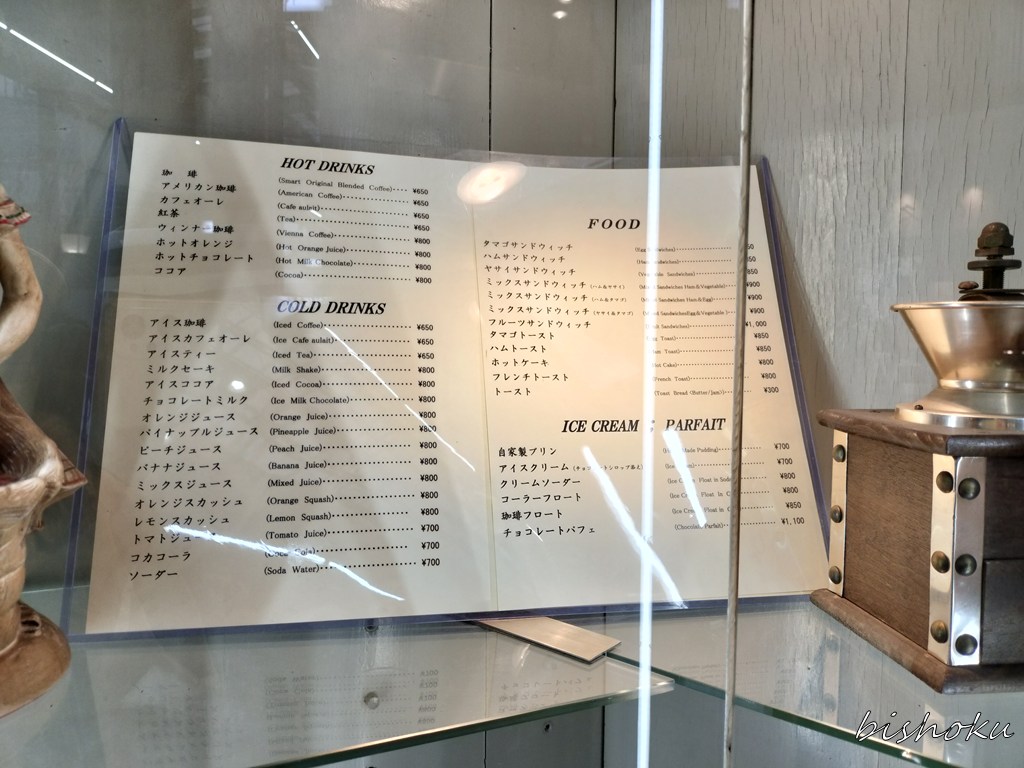 HOT DRINKS
珈 琲 (Smart Original Blended Coffee)‥‥ ¥650
アメリカン珈琲 (American Coffee)‥‥ ¥650
カフェオーレ (Cafe aulait)‥‥ ¥650
紅茶 (Tea)‥‥ ¥650
ウィンナー珈琲 (Vienna Coffee)‥‥ ¥800
ホットオレンジ (Hot Orange Juice)‥‥ ¥800
ホットチョコレート (Hot Milk Chocolate)‥‥ ¥800
ココア (Cocoa)‥‥ ¥800
COLD DRINKS
アイス珈琲 (Iced Coffee)‥‥ ¥650
アイスカフェオーレ (Ice Cafe aulait)‥‥ ¥650
アイスティー (Iced Tea)‥‥ ¥650
ミルクセーキ (Milk Shake)‥‥ ¥800
アイスココア (Iced Cocoa)‥‥ ¥800
チョコレートミルク (Ice Milk Chocolate)‥‥ ¥800
オレンジジュース (Orange Juice)‥‥ ¥800
パイナップルジュース (Pineapple Juice)‥‥ ¥800
ピーチジュース (Peach Juice)‥‥ ¥800
バナナジュース (Banana Juice)‥‥ ¥800
ミックスジュース (Mixed Juice)‥‥ ¥800
オレンジスカッシュ (Orange Squash)‥‥ ¥800
レモンスカッシュ (Lemon Squash)‥‥ ¥800
トマトジュース (Tomato Juice)‥‥ ¥700
コカコーラ (Coca Cola)‥‥ ¥700
ソーダー (Soda Water)‥‥ ¥700
FOOD
タマゴサンドウィッチ (Egg Sandwiches)‥‥
ハムサンドウィッチ (Ham Sandwiches)‥‥
ヤサイサンドウィッチ Sandwiches)‥‥
ミックスサンドウィッチ (ハム&ヤサイ) Sandwiches Ham&Vegetable)‥‥ ¥900
ミックスサンドウィッチ (ハム&タマゴ) Sandwiches Ham&Egg)‥‥ ¥900
ミックスサンドウィッチ (ヤサイ&タマゴ) Sandwiches Egg&Vegetable)‥‥ ¥900
フルーツサンドウィッチ Sandwiches)‥‥ ¥1,000
タマゴトースト Toast)‥‥ ¥850
ハムトースト Toast)‥‥ ¥850
ホットケーキ (Hot Cake)‥‥
フレンチトースト (French Toast)‥‥
トースト (Toast Bread (Butter/Jam))‥‥ ¥300
ICE CREAM & PARFAIT
自家製プリン Made Pudding)‥‥ ¥700
アイスクリーム ‥‥ ¥700
クリームソーダー Float in Soda ¥800
コーラーフロート Float in ¥800
珈琲フロート Float in ¥850
チョコレートパフェ (Chocolate Parfait)‥‥ ¥1,100
bishoku